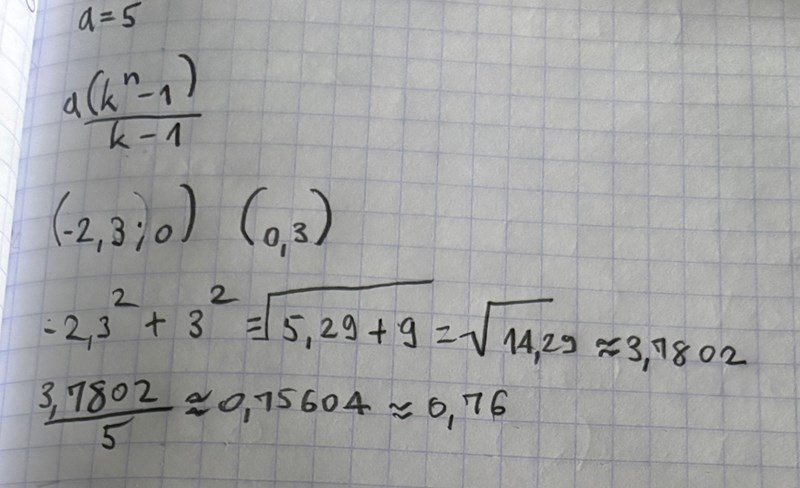 a=5
a(kⁿ-1)
k-1
(-2,3;0) (0,3)
-2,3² + 3² = √5,29+9 = √14,29 ≈ 3,7802
3,7802 ≈ 0,75604 ≈ 0,76
5